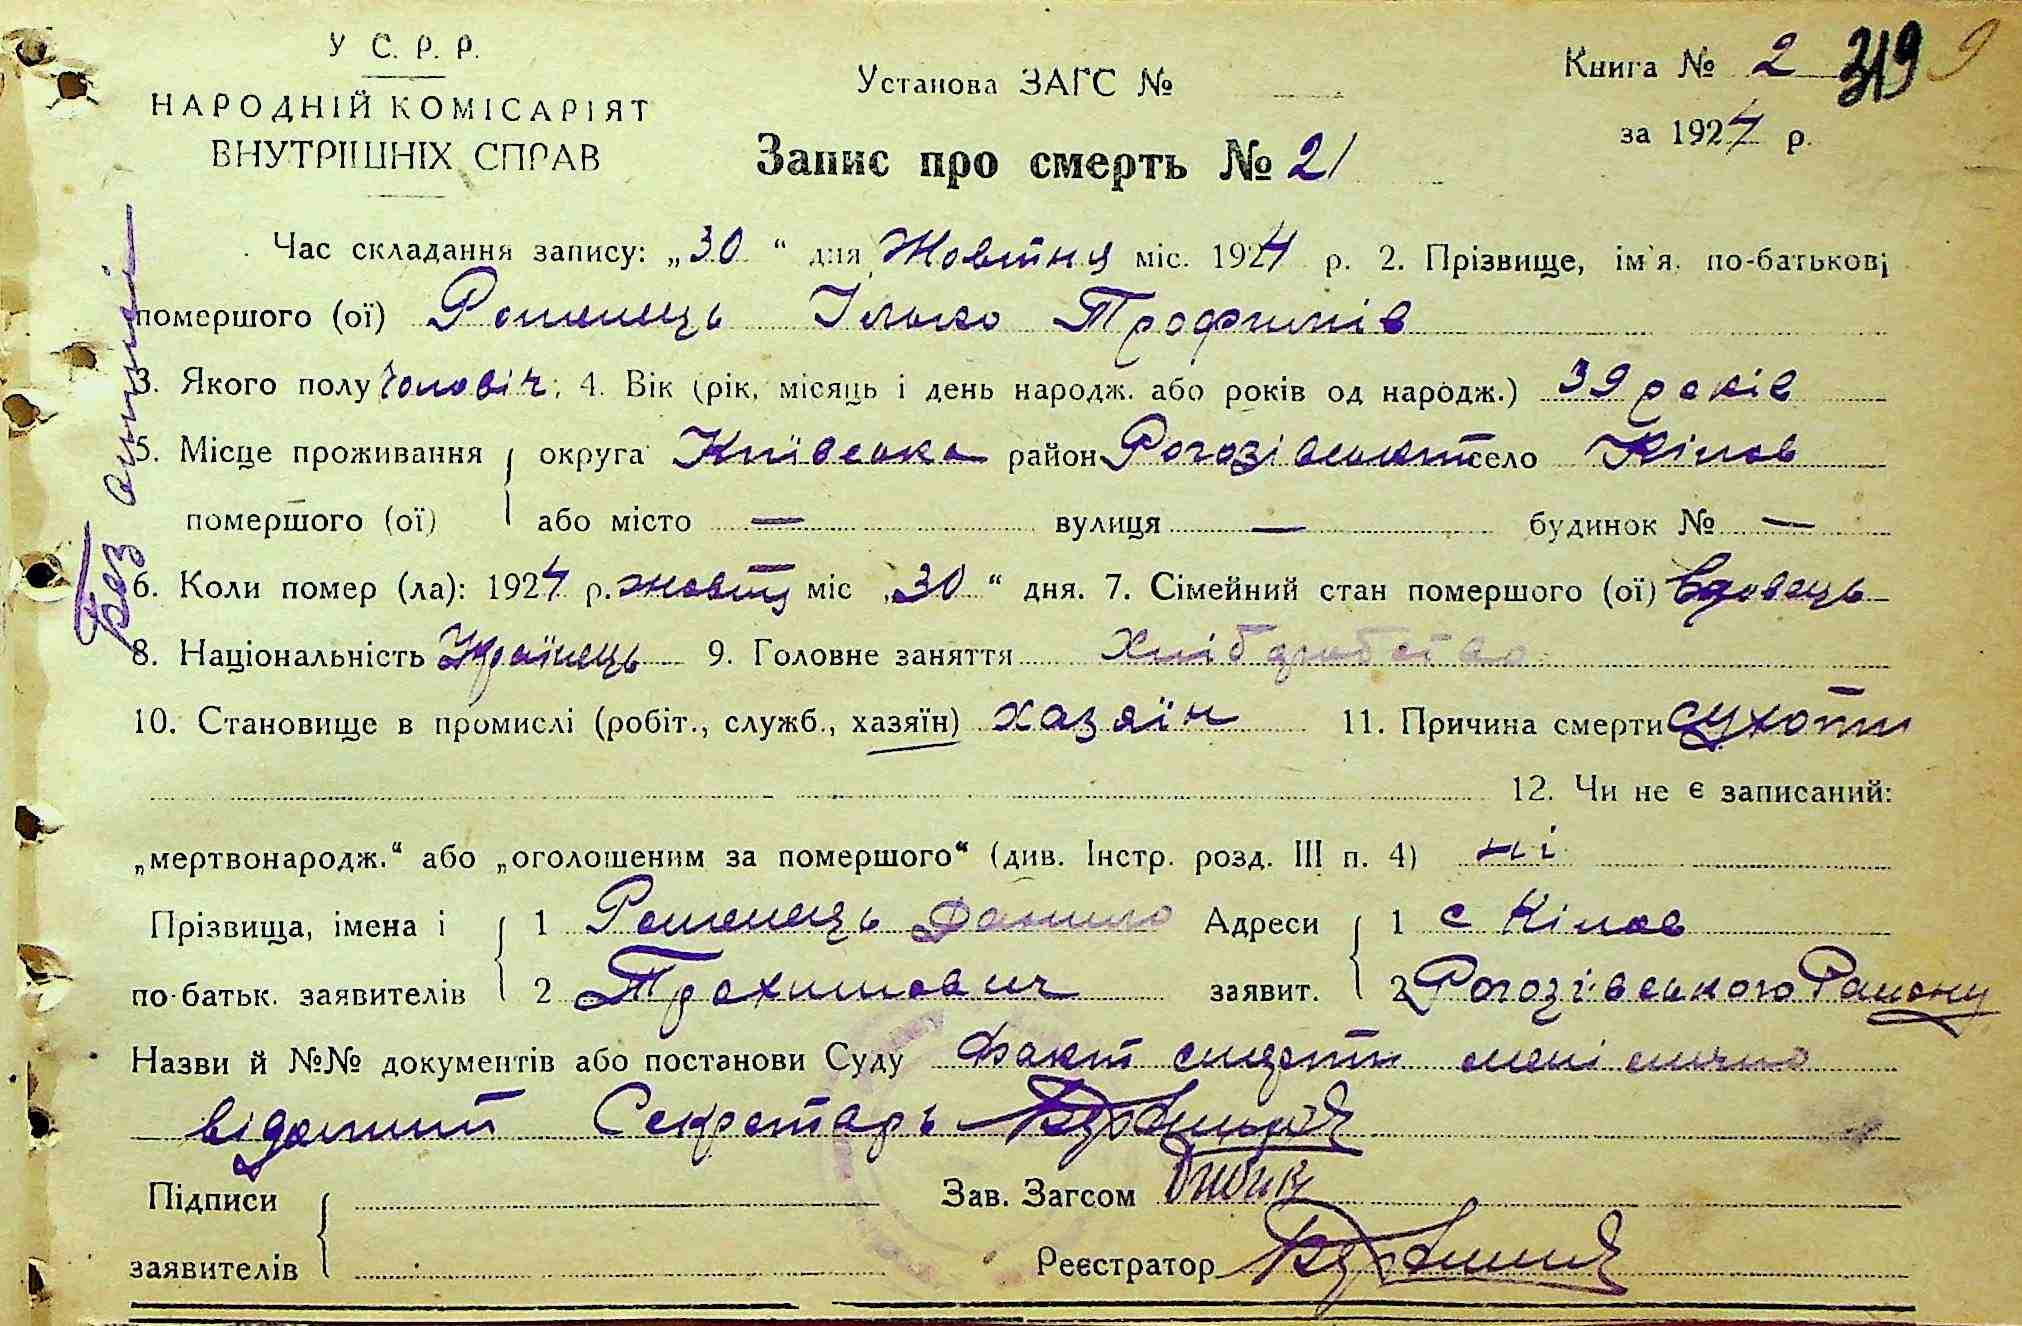 У С. Р. Р.
НАРОДНІЙ КОМІСАРІЯТ
ВНУТРІШНІХ СПРАВ
Установа ЗАГС №
Книга № 2 319 9
за 1924 р.
Запис про смерть № 21
Час складання запису: „30 “ дня Жовтня міс. 1924 р. 2. Прізвище, ім'я, по-батькові
помершого (ої) Ременець Ілько Трофимів
3. Якого полу Чоловіч; 4. Вік (рік, місяць і день народж. або років од народж.) 39 років
5. Місце проживання округа Київська район Рогозівськ село Кілов
помершого (ої) або місто — вулиця — будинок № —
6. Коли помер (ла): 1924 р. жовтц міс „30 “ дня. 7. Сімейний стан помершого (ої) Вдовець
8. Національність Українець 9. Головне заняття Хліборобство
10. Становище в промислі (робіт., служб., хазяїн) хазяїн 11. Причина смерти сухоти
12. Чи не є записаний:
„мертвонародж.“ або „оголошеним за помершого“ (див. Інстр. розд. III п. 4) ні
Прізвища, імена і 1 Ременець Данило Адреси 1 с Кілов
по-батьк. заявителів 2 Трохимович заявит. 2 Рогозівського Району
Назви й №№ документів або постанови Суду Факт смерти мені лично
відомит Секретарь
Підписи Зав. Загсом
заявителів Реєстратор
Без